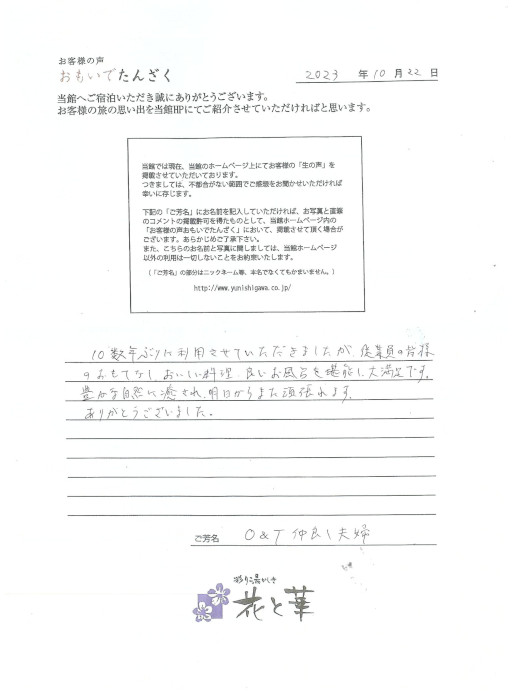 お客様の声
おもいでたんざく
2023 年 10 月 22 日
当館へご宿泊いただき誠にありがとうございます。
お客様の旅の思い出を当館HPにてご紹介させていただければと思います。
当館では現在、当館のホームページ上にてお客様の「生の声」を
掲載させていただいております。
つきましては、不都合がない範囲でご感想をお聞かせいただければ
幸いに存じます。
下記の「ご芳名」にお名前を記入していただければ、お写真と直筆
のコメントの掲載許可を得たものとして、当館ホームページ内の
「お客様の声おもいでたんざく」において、掲載させて頂く場合が
ございます。あらかじめご了承下さい。
また、こちらのお名前と写真に関しましては、当館ホームページ
以外の利用は一切しないことをお約束いたします。
（「ご芳名」の部分はニックネーム等、本名でなくてもかまいません。）
http://www.yunishigawa.co.jp/
10数年ぶりに利用させていただきましたが、従業員の皆様
のおもてなし、おいしい料理、良いお風呂を堪能し大満足です。
豊かな自然に癒され、明日からまた頑張れます。
ありがとうございました。
ご芳名 O&T 仲良し夫婦
彩り湯かしき
花と華